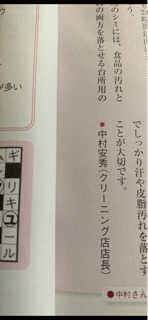 でしっかり汗や皮脂汚れを落とす
ことが大切です。
●中村安秀(クリーニング店店長)
のシミには、食品の汚れと
の両方を落とせる台所用の
●中村さん
が多い
ギ
リキユール